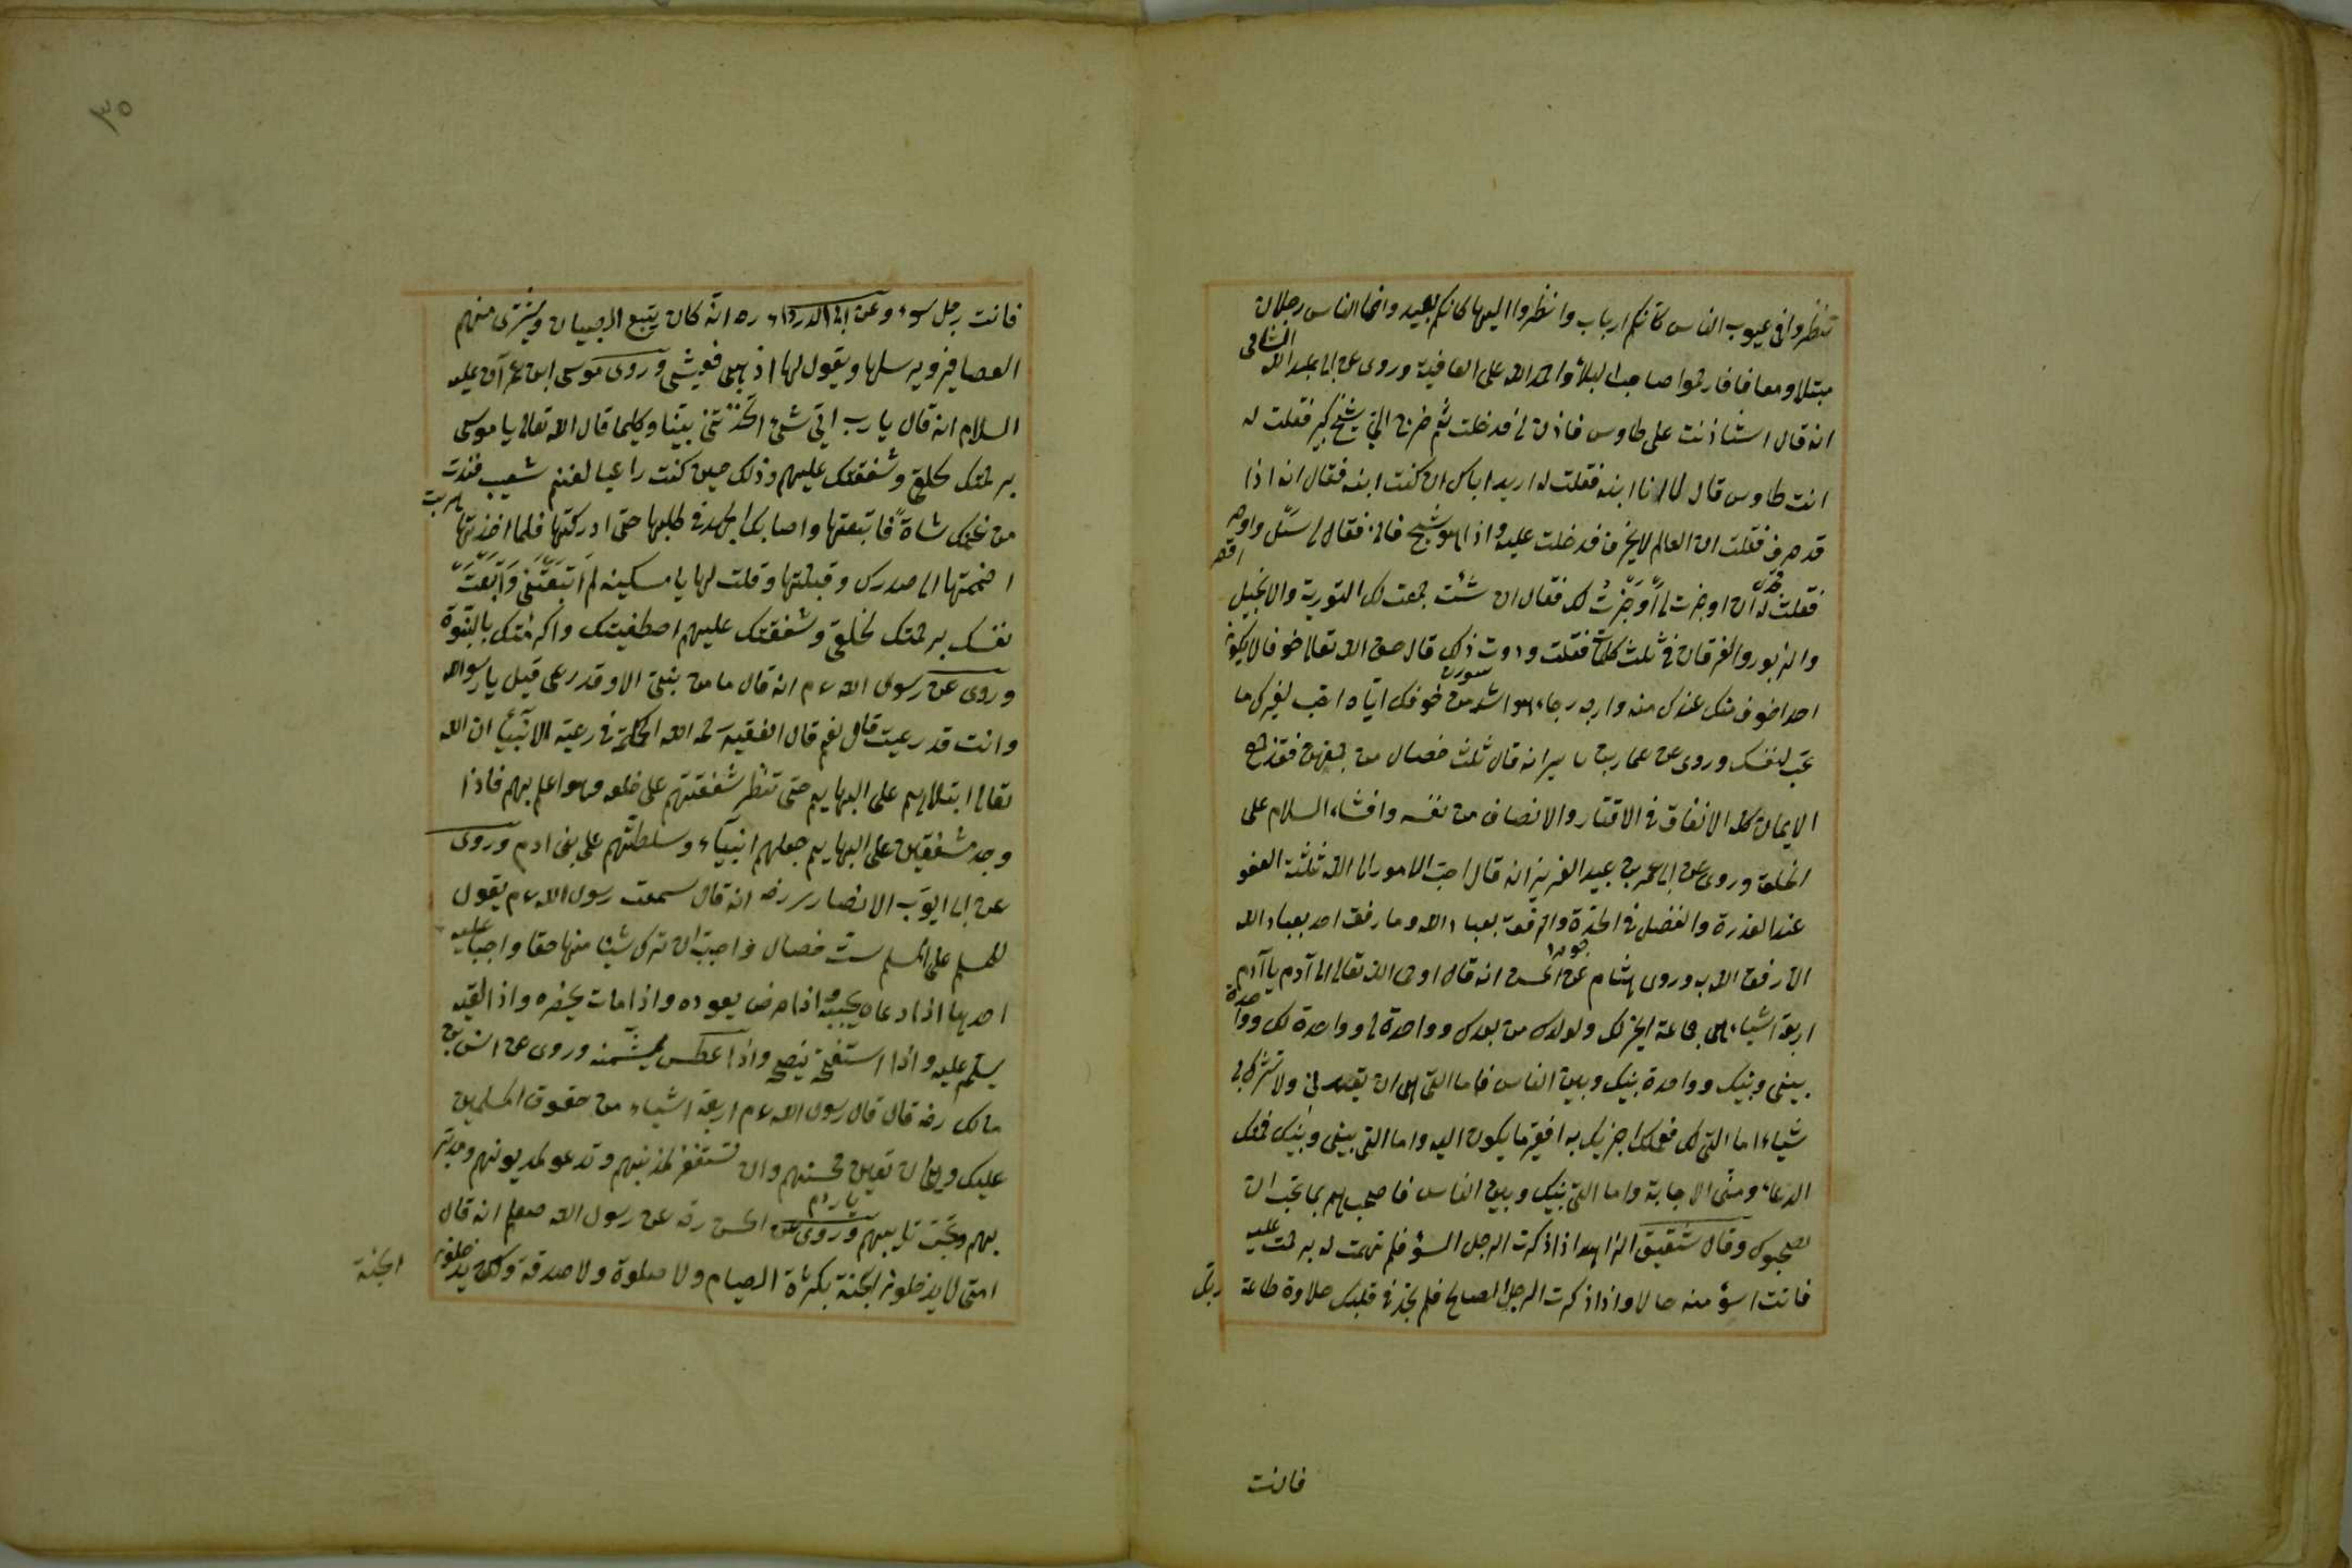 تنظروا في عيوب الناس كانكم ارباب وانظروا اليها كانكم لعبيد وانما الناس رجلان
مبتلا ومعافا فارحموا صاحب البلاء واحمد الله على العافية وروى عن ابى عبد الله الشامى
انه قال استأذنت على طاوس فاذن لى فدخلت ثم خرج الىّ شيخ كبير فقلت له
انت طاوس قال لا انا ابنه فقلت له اريد اباك ان كنت ابنه فقال انه اذا
قد خرف فقلت ان العالم لا يخرف فدخلت عليه واذا هو شيخ فانٍ فقال لى سئل واوجز
فقلت له ان اوجزت لى اَوْجَزْتُ لك فقال ان شئت جمعت لك التورية والانجيل
والزبور والفرقان فى ثلث كلمات فقلت وددت ذلك قال خف الله تعالى خوفا لا يكون
احد اخوف منك عندك منه وارجه رجاء هو اشد من خوفك اياه احب لغيرك ما
تحب لنفسك وروى عن عمار بن ياسر انه قال ثلث خصال من جمعهن فقد جمع
الايمان كله الانفاق فى الاقتار والانصاف من نفسه وافشاء السلام على
الخلق وروى عن ابى عمر بن عبد العزيز انه قال احب الامور الى الله ثلثة العفو
عند القدرة والفضل فى الحدّة والرفق بعباد الله وما رفق احد بعباد الله
الا رفق الله به وروى هشام عن الحسن انه قال اوحى الله تعالى الى آدم يا آدم
اربعة اشياء هى جماعة الخير لك ولولدك من بعدك وواحدة لى وواحدة لك وواحدة
بينى وبينك وواحدة بينك وبين الناس فاما التى لى ان تعبدنى ولا تشرك بى
شياء اما التى لك فعملك اجزيك به افقر ما يكون اليه واما التى بينى وبينك فمنك
الدعاء ومنّى الاجابة واما التى بينك وبين الناس فاصحبهم بما تحب ان
يصحبوك وقال شقيق الزاهد اذا ذكرت الرجل السؤ فلم تهمت له برحمت عليه
فانت اسؤ منه حالا واذا ذكرت الرجل الصالح فلم تجد فى قلبك حلاوة طاعة ربك
فانت
٣٥
فانت رجل سوء وعن ابى الدرداء ره انه كان يتبع الصبيان ويشترى منهم
العصافير ويرسلها ويقول لها اذهبى فعيشى وروى موسى ابن عمران عليه
السلام انه قال يا رب اىّ شئ اتخذتنى نبيّنا وكليما قال الله تعالى يا موسى
برحمتك لخلقى وشفقتك عليهم وذلك حين كنت راعيا لغنم شعيب فندت
من غنمك شاة فاتبعتها واصابك الجهد فى طلبها حتى ادركتها فلما اخذتها
اضممتها الى صدرك وقبلتها وقلت لها يا مسكينة لم اَتْعَبْتَنى وَاَتْعَبْت
نفسك برحمتك لخلقى وشفقتك عليهم اصطفيتك واكرمتك بالنبوة
وروى عن رسول الله ءم انه قال ما من نبىّ الا وقد رعى قيل يا رسول الله
وانت قد رعيت قال نعم قال الفقيه رحمه الله الحكمة فى رعية الانبياء ان الله
تعالى ابتلاهم على البهايم حتى تنظر شفقتهم على خلقه وهو اعلم بهم فاذا
وجد مشفقين على البهايم جعلهم انبياء وسلطتهم على بنى ادم وروى
عن ابى ايوب الانصارى رضه انه قال سمعت رسول الله ءم يقول
للمسلم على المسلم ست خصال واجب ان ترك شيئا منها حقا واجبا عليه
احديها اذا دعاه يجيبه واذا مرض يعوده واذا مات يحضره واذا لقيه
يسلّم عليه واذا استنصح ينصح واذا عطس يشمته وروى عن انس بن
مالك رضه قال قال رسول الله ءم اربعة اشياء من حقوق المسلمين
عليك وهى ان تعين محسنهم وان تستغفر لمذنبهم وتدعو لمديونهم
بهم وتحب تايبهم وروى عن الحسن رضه عن رسول الله صعلم انه قال
امتى لا يدخلون الجنة بكثرة الصيام ولا صلوة ولا صدقة ولكن يدخلون
الجنة